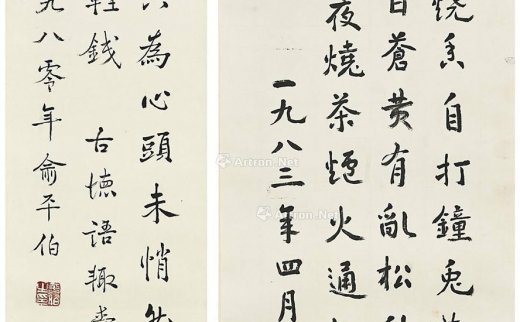 燒香自打鐘兔
蒼黄有亂松
夜燒茶火通
一九八三年四月
為心頭未悄
輕錢 古德語輒
九八零年俞平伯
Artron.Net
Artron.Net